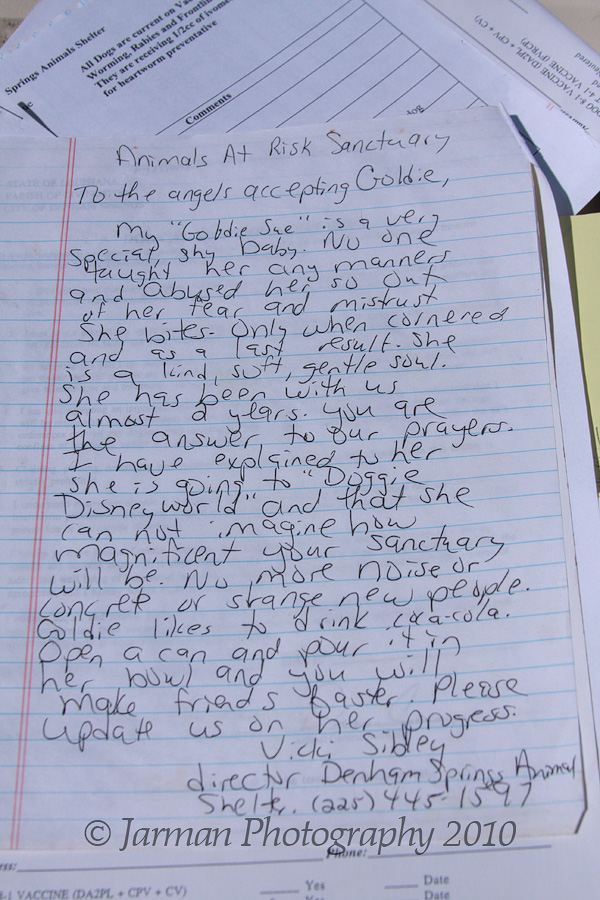 Springs Animals Shelter
All Dogs are current on
Worming, Rabies and Frontline
They are receiving 1/2cc of
for heartworm preventative
Comments
VACCINE (DA2PL + CPV + CV)
4-1 VACCINE (FVRCP)
Animals At Risk Sanctuary
To the angels accepting Goldie,
My "Goldie Sue" is a very
special, shy baby. No one
taught her any manners
and abused her so out
of her fear and mistrust
She bites. Only when cornered
and as a last result. She
is a kind, soft, gentle soul.
She has been with us
almost 2 years. You are
the answer to our prayers.
I have explained to her
she is going to "Doggie
Disneyworld" and that she
can not imagine how
magnificent your sanctuary
will be. No more noise or
concrete or strange new people.
Goldie likes to drink coca-cola.
Open a can and pour it in
her bowl and you will
make friends faster. Please
update us on her progress.
Vicki Sibley
director Denham Springs Animal
Shelter. (225) 445-1597
© Jarman Photography 2010
Phone:
-1 VACCINE (DA2PL + CPV + CV)
Yes
Date
Yes
Date